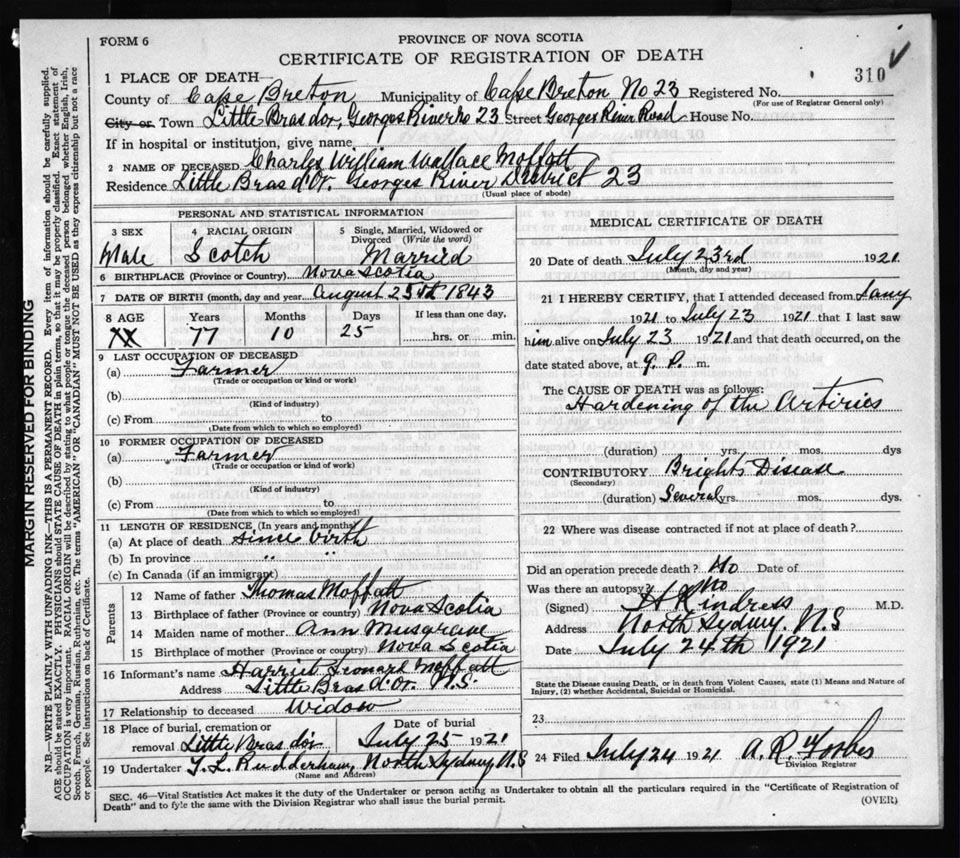 FORM 6
PROVINCE OF NOVA SCOTIA
CERTIFICATE OF REGISTRATION OF DEATH
310
1 PLACE OF DEATH—
County of Cape Breton Municipality of Cape Breton No 23 Registered No.
(For use of Registrar General only)
City or Town Little Bras dor, Georges River No 23 Street Georges River Road House No.
If in hospital or institution, give name
2 NAME OF DECEASED Charles William Wallace Moffatt
Residence Little Bras d'Or. Georges River District 23
(Usual place of abode)
PERSONAL AND STATISTICAL INFORMATION
3 SEX Male
4 RACIAL ORIGIN Scotch
5 Single, Married, Widowed or Divorced (Write the word) Married
6 BIRTHPLACE (Province or Country) Nova Scotia
7 DATE OF BIRTH (month, day and year) August 25th 1843
8 AGE Years 77 Months 10 Days 25 If less than one day, hrs. or min.
9 LAST OCCUPATION OF DECEASED
(a) Farmer
(Trade or occupation or kind of work)
(b)
(Kind of industry)
(c) From to
(Date from which to which so employed)
10 FORMER OCCUPATION OF DECEASED
(a) Farmer
(Trade or occupation or kind of work)
(b)
(Kind of industry)
(c) From to
(Date from which to which so employed)
11 LENGTH OF RESIDENCE (In years and months)
(a) At place of death since birth
(b) In province " "
(c) In Canada (if an immigrant)
Parents
12 Name of father Thomas Moffatt
13 Birthplace of father (Province or country) Nova Scotia
14 Maiden name of mother Ann Musgrave
15 Birthplace of mother (Province or country) Nova Scotia
16 Informant's name Harriet Leonard Moffatt
Address Little Bras d'Or. N.S.
17 Relationship to deceased Widow
18 Place of burial, cremation or removal Little Bras dor
Date of burial July 25 1921
19 Undertaker T. L. Rudderham, North Sydney N.S
(Name and Address)
MEDICAL CERTIFICATE OF DEATH
20 Date of death July 23rd 1921
(Month, day and year)
21 I HEREBY CERTIFY, that I attended deceased from Jany
1921 to July 23 1921 that I last saw
him alive on July 23 1921 and that death occurred, on the
date stated above, at 9. P. m.
The CAUSE OF DEATH was as follows:
Hardening of the Arteries
(duration) yrs. mos. dys
CONTRIBUTORY Brights Disease
(Secondary)
(duration) Several yrs. mos. dys.
22 Where was disease contracted if not at place of death?
Did an operation precede death? No Date of
Was there an autopsy? No
(Signed) H Kindress M.D.
Address North Sydney. N.S
Date July 24th 1921
State the Disease causing Death, or in death from Violent Causes, state (1) Means and Nature of
Injury, (2) whether Accidental, Suicidal or Homicidal.
23
24 Filed July 24 1921 A. R. Forbes
Division Registrar
SEC. 46—Vital Statistics Act makes it the duty of the Undertaker or person acting as Undertaker to obtain all the particulars required in the "Certificate of Registration of
Death" and to fyle the same with the Division Registrar who shall issue the burial permit.
(OVER)
MARGIN RESERVED FOR BINDING
N.B.—WRITE PLAINLY WITH UNFADING INK—THIS IS A PERMANENT RECORD. Every item of information should be carefully supplied.
AGE should be stated EXACTLY. PHYSICIANS should STATE CAUSE OF DEATH in plain terms, so that it may be properly classified. Exact statement of
OCCUPATION is very important. RACIAL ORIGIN will be described by stating to what people or tongue the deceased person belonged whether English, Irish,
Scotch, French, German, Russian, Ruthenian, etc. The terms "AMERICAN" OR "CANADIAN" MUST NOT BE USED as they express citizenship but not a race
or people. See instructions on back of Certificate.